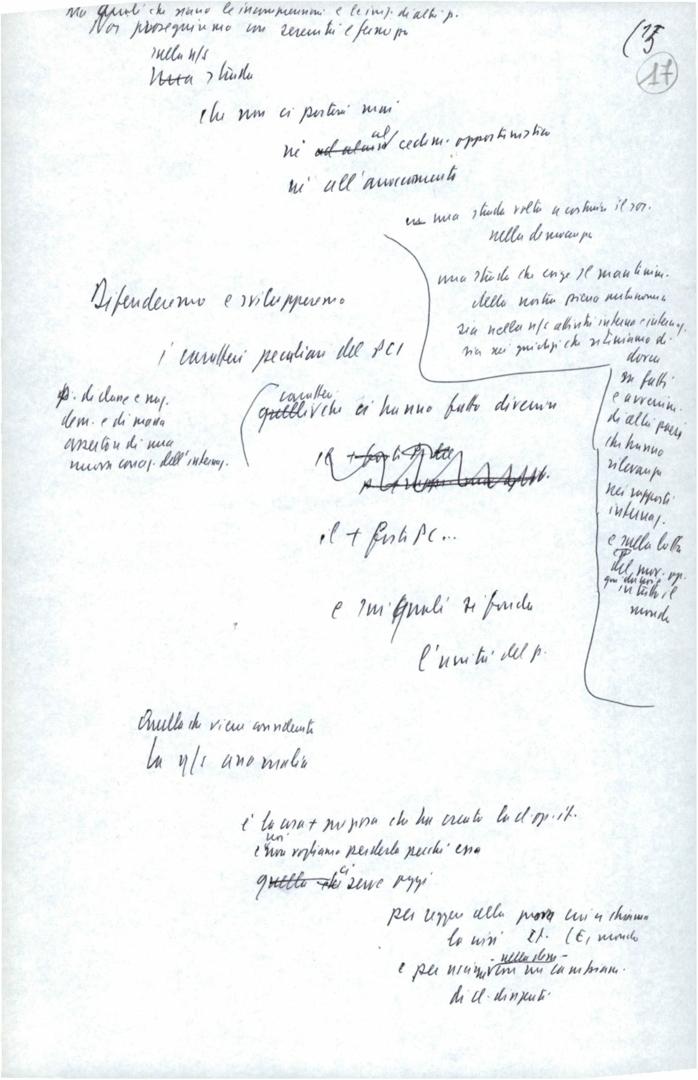 ma quali che siano le incomprensioni e le imp. di altri p.
Noi proseguiremo con serenità e fermezza
sulla n/s
Una strada
che non ci porterà mai
né ad alcun al cedim. opportunistico
né all'arroccamento
una strada volta a costruire il soc.
nella democrazia
una strada che esige il mantenim.
della nostra piena autonomia
sia nella n/s attività interna e internaz.
sia nei giudizi che riteniamo di
dover
su fatti
e avvenim.
di altri paesi
che hanno
rilevanza
nei rapporti
internaz.
e sulla lotta
del mov. op.
in tutto il
mondo
Difenderemo e svilupperemo
i caratteri peculiari del PCI
p. di classe e naz.
dem. e di massa
assertori di una
nuova concez. dell'internaz.
caratteri
quelli che ci hanno fatto divenire
il + forte
il + forte PC...
e sui quali si fonda
l'unità del p.
Quella che viene considerata
la n/s anomalia
è la cosa + preziosa che ha creato la cl. op. it.
e noi non vogliamo perderla perché essa
quella che ci serve oggi
per reggere alla prova cui ci chiama
la crisi It. (E, mondo
nella dem.
e per un cambiam.
di cl. dirigenti